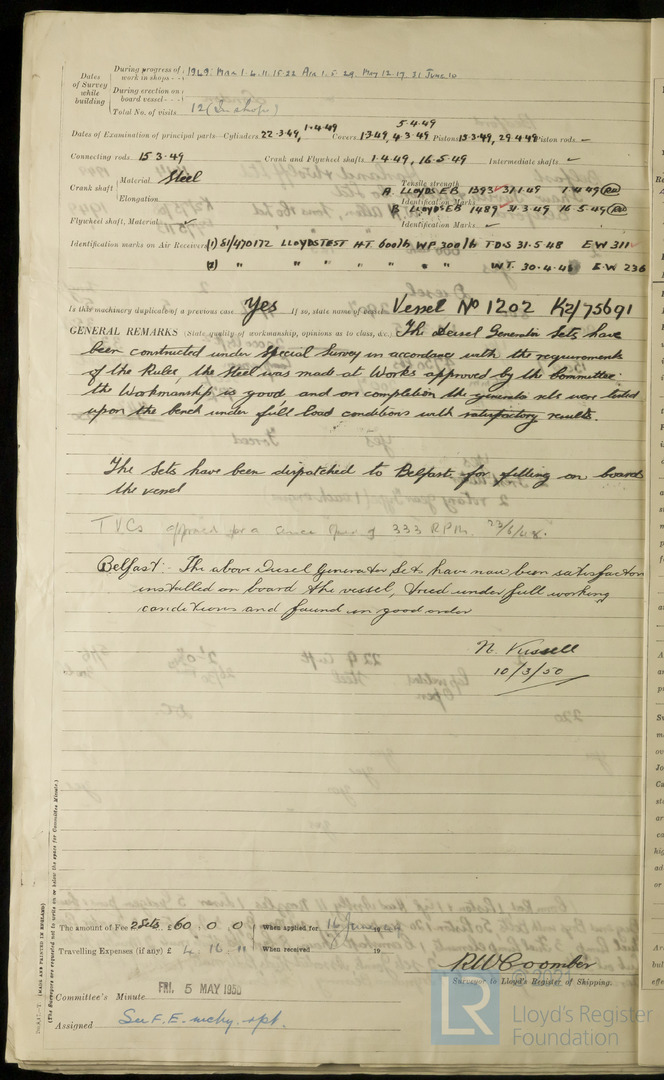 Dates of Survey while building
During progress of work in shops - - 1949: Mar 1. 4. 11. 15. 22 Apr 1. 5. 29. May 12. 17. 31 June 10
During erection on board vessel - - -
Total No. of visits 12 (In shop)
Dates of Examination of principal parts—Cylinders 22.3.49, 1.4.49 Covers 1.3.49, 4.3.49 5.4.49 Pistons 15.3.49, 29.4.49 Piston rods -
Connecting rods 15.3.49 Crank and Flywheel shafts 1.4.49, 16.5.49 Intermediate shafts -
Crank shaft Material Steel Tensile strength
Elongation A LLOYDS EB 1393 31.1.49 1.4.49
Identification Marks B LLOYDS EB 1489 31.3.49 16.5.49
Flywheel shaft, Material Identification Marks
Identification marks on Air Receivers (1) 51/470172 LLOYDS TEST HT. 600 lb WP 300 lb T.D.S 31.5.48 E.W 311
(2) " " " " " " W.T. 30.4.48 E.W 236
Is this machinery duplicate of a previous case Yes If so, state name of vessel Vessel No 1202 K2/75691
GENERAL REMARKS (State quality of workmanship, opinions as to class, &c.) The Diesel Generator Sets have
been constructed under Special Survey in accordance with the requirements
of the Rules, the steel was made at Works approved by the Committee.
the Workmanship is good, and on completion the generator sets were tested
upon the bench under full load conditions with satisfactory results.
The Sets have been dispatched to Belfast for fitting on board
the vessel
TVCs approved for a service speed of 333 RPM. 23/6/48.
Belfast: The above Diesel Generator Sets have now been satisfactor
installed on board the vessel, tried under full working
conditions and found in good order
N. Russell
10/3/50
(MADE AND PRINTED IN ENGLAND)
(The Surveyors are requested not to write on or below the space for Committee's Minute.)
The amount of Fee 2 Sets £60 . 0 . 0 When applied for 19
Travelling Expenses (if any) £ 4 . 16 . 11 When received 19
R W Coomber
Surveyor to Lloyd's Register of Shipping.
Committee's Minute FRI. 5 MAY 1950
Assigned See F.E. mchy. rpt.
© 2021
LR Lloyd's Register
Foundation